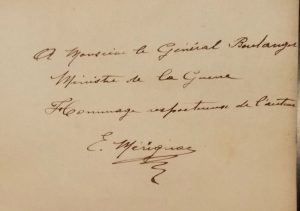 A Monsieur le Général Boulanger
Ministre de la Guerre
Hommage respectueux de l'auteur
E. Mérignac